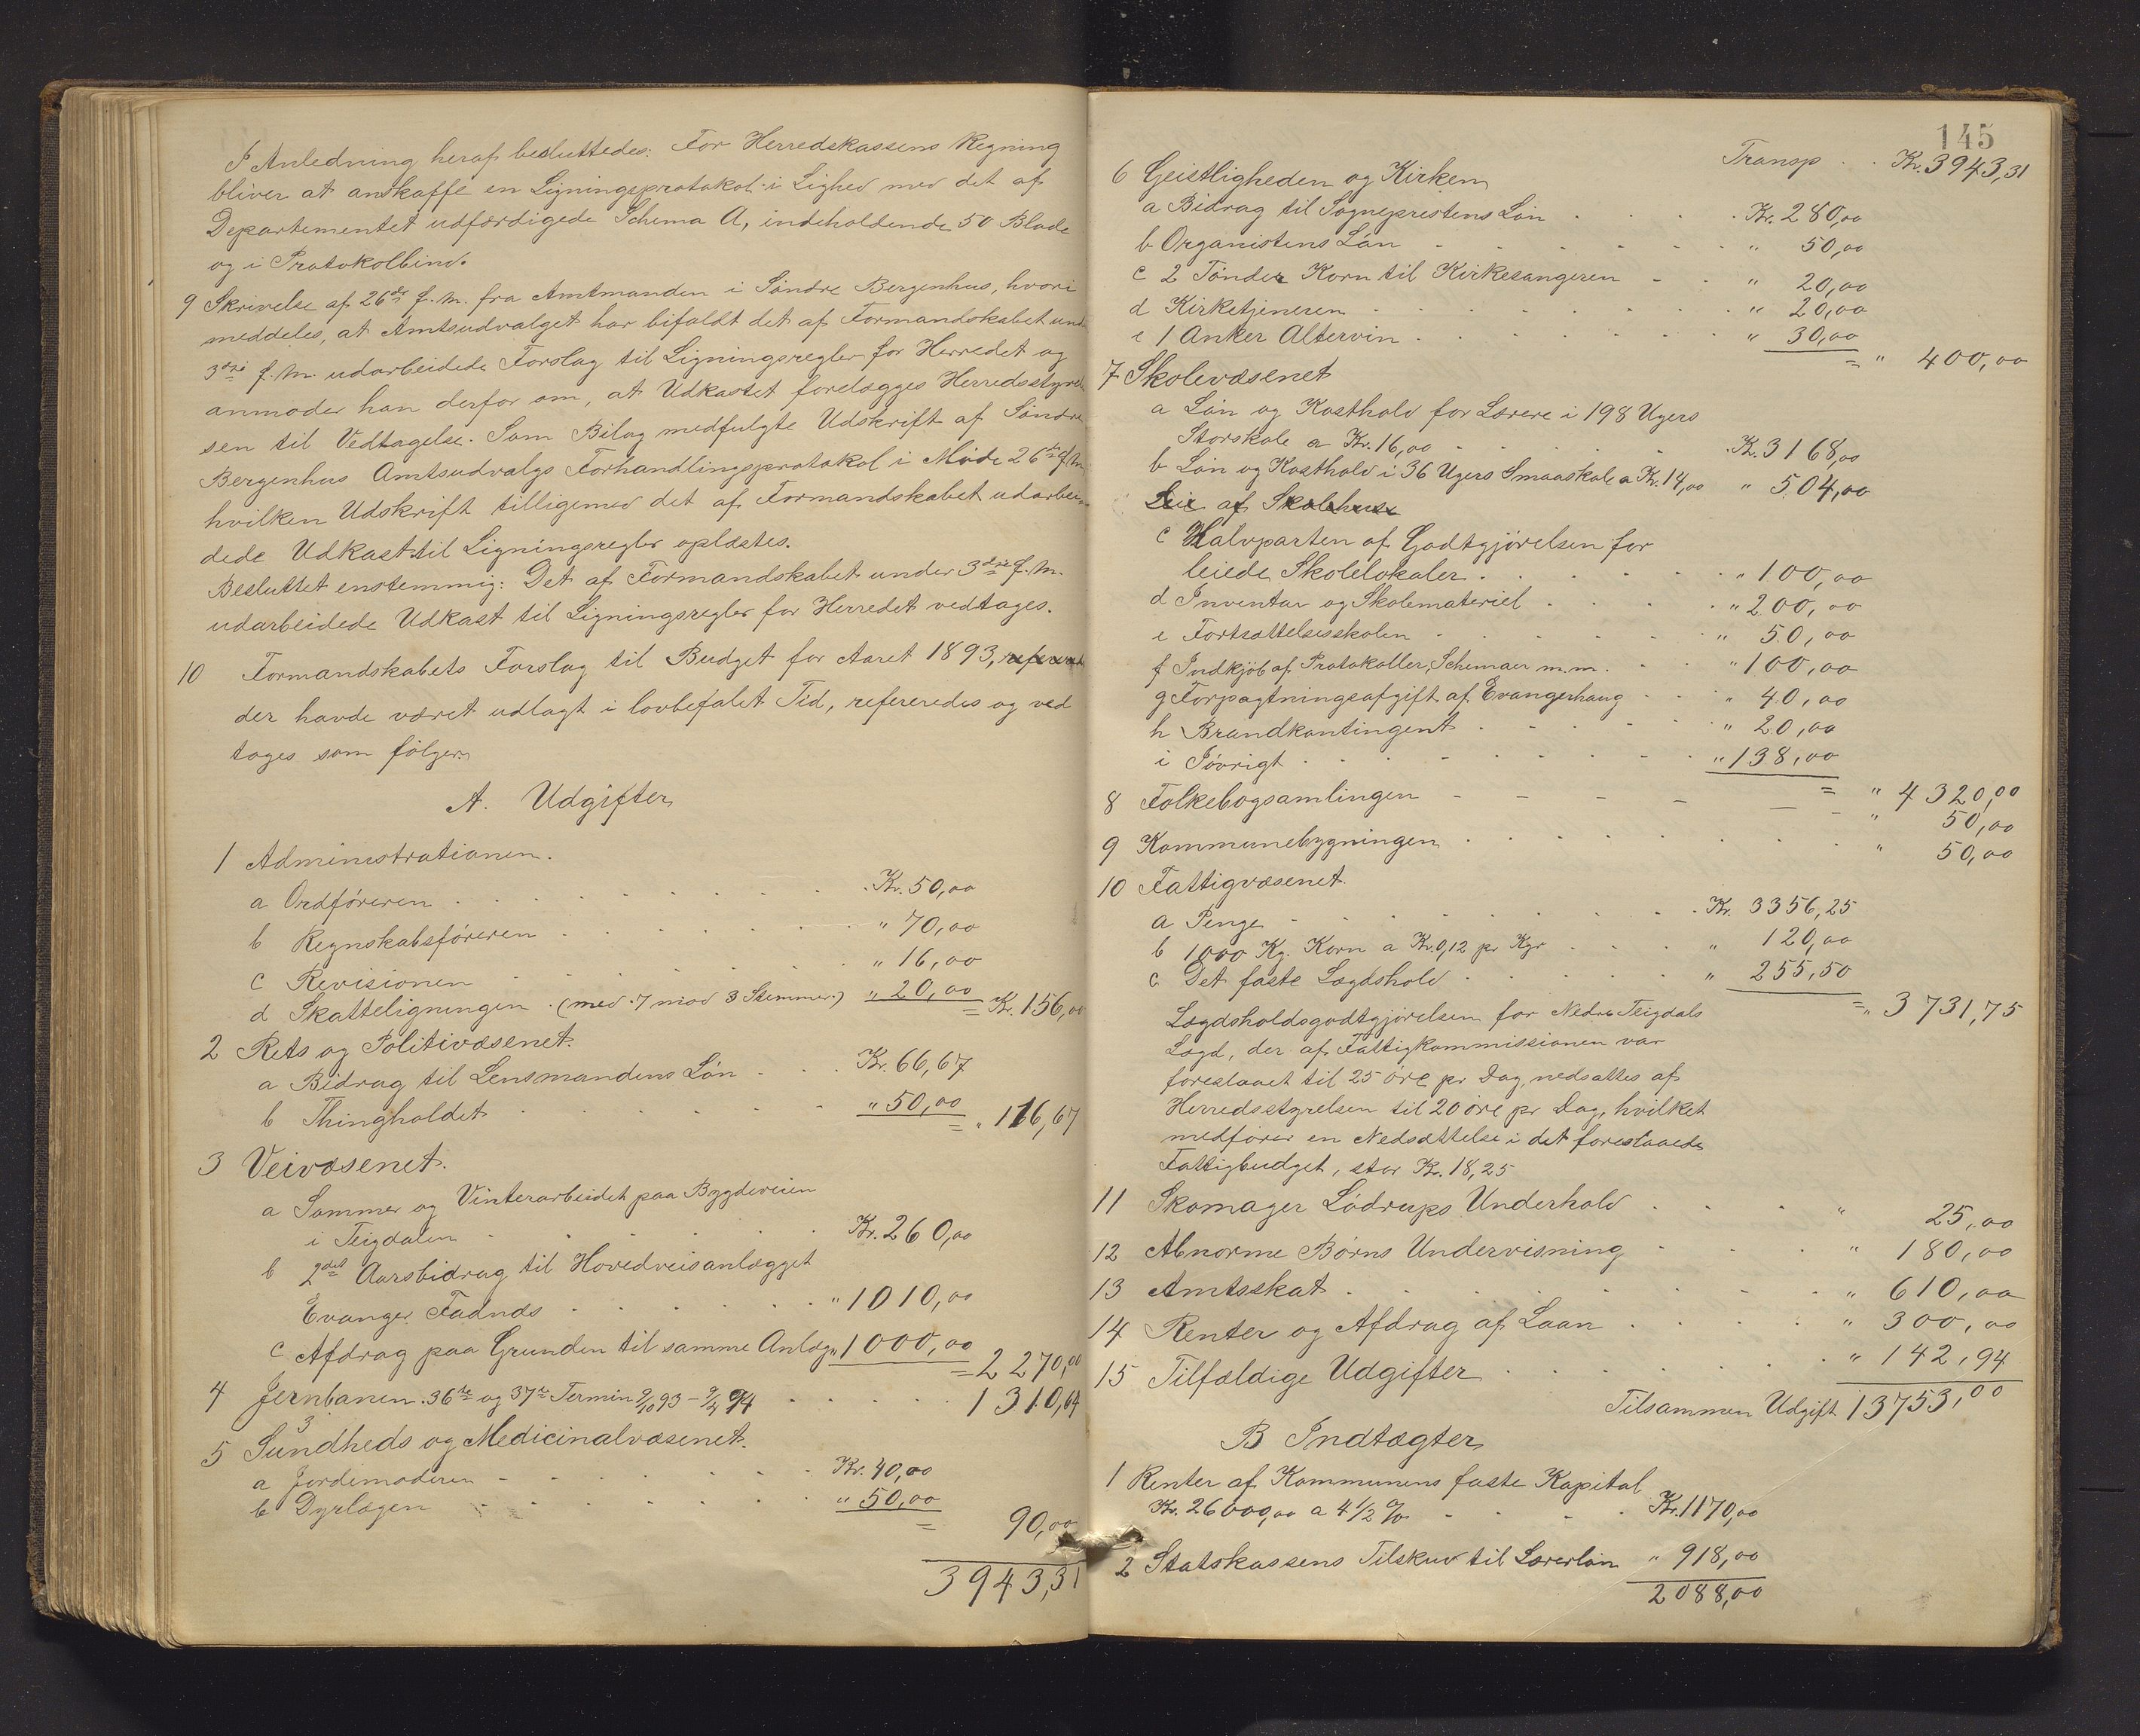 I Anledning heraf besluttedes: For Herredskassens Regning
bliver at anskaffe en Ligningsprotokol i Lighed med det af
Departementet udfærdigede Schema A, indeholdende 50 Blade
og i Protokolbind.
9 Skrivelse af 26de f. M. fra Amtmanden i Söndre Bergenhus, hvori
meddeles, at Amtsudvalget har bifaldt det af Formandskabet under
3die f. M. udarbeidede Forslag til Ligningsregler for Herredet og
anmoder han derfor om, at Udkastet forelægges Herredsstyrel
sen til Vedtagelse. Som Bilag medfulgte Udskrift af Söndre
Bergenhus Amtsudvalgs Forhandlingsprotokol i Möde 26de f. M.
hvilken Udskrift tilligemed det af Formandskabet udarbei
dede Udkast til Ligningsregler oplæstes.
Besluttet enstemmig: Det af Formandskabet under 3die f. M.
udarbeidede Udkast til Ligningsregler for Herredet vedtages.
10 Formandskabets Forslag til Budget for Aaret 1893,
der havde været udlagt i lovbefalet Tid, refereredes og ved
toges som fölger:
A. Udgifter
1 Administrationen.
a Ordföreren . . . Kr. 50,00
b Regnskabsföreren . . . " 70,00
c Revisionen . . . " 16,00
d Skatteligningen . (med 7 mod 3 Stemmer.) " 20,00 = Kr. 156,00
2 Rets og Politivæsenet.
a Bidrag til Lensmandens Lön . . . Kr. 66,67
b Thingholdet . . . " 50,00 = " 116,67
3 Veivæsenet.
a Sommer og Vinterarbeidet paa Bygdeveien
i Teigdalen . . . Kr. 260,00
b 2det Aarsbidrag til Hovedveisanlægget
Evanger Fadnæs . . . " 1010,00
c Afdrag paa Grunden til samme Anlæg " 1000,00 = 2270,00
4 Jernbanen. 36te og 37te Termin 9/10 93 - 9/4 94 . . . 1310,64
5 Sundheds og Medicinalvæsenet.
a Jordemoderen . . . Kr. 40,00
b Dyrlægen . . . " 50,00
= 90,00
3943,31
145
Transp . . Kr. 3943,31
6 Geistligheden og Kirken
a Bidrag til Sogneprestens Lön . . . Kr. 280,00
b Organistens Lön . . . " 50,00
c 2 Tönder Korn til Kirkesangeren . . " 20,00
d Kirketjeneren . . . " 20,00
e 1 Anker Altervin . . . " 30,00
= " 400,00
7 Skolevæsenet
a Lön og Kosthold for Lærere i 198 Ugers
Storskole a Kr. 16,00 . . . Kr. 3168,00
b Lön og Kosthold i 36 Ugers Smaaskole a Kr. 14,00 " 504,00
Leie af Skolehuse
c Halvparten af Godtgjörelsen for
leiede Skolelokaler . . . " 100,00
d Inventar og Skolemateriel . . . " 200,00
e Fortsættelsesskolen . . . " 50,00
f Indkjöb af Protokoller, Schemaer m.m. . . " 100,00
g Forpagtningsafgift af Evangerhaug . . " 40,00
h Brandkontingent . . . " 20,00
i Iövrigt . . . " 138,00
= " 4320,00
8 Folkebogsamlingen . . . " 50,00
9 Kommunebygningen . . . " 50,00
10 Fattigvæsenet
a Penge . . . Kr. 3356,25
b 1000 Kg. Korn a Kr. 0,12 pr Kgr . . . " 120,00
c Det faste Lægdshold . . . " 255,50
= " 3731,75
Lægdsholdsgodtgjörelsen for Nedre Teigdals
Lægd, der af Fattigkommissionen var
foreslaaet til 25 öre pr Dag, nedsattes af
Herredsstyrelsen til 20 öre pr Dag, hvilket
medförer en Nedsættelse i det foreslaaede
Fattigbudget, stor Kr. 18,25
11 Skomager Lödrups Underhold . . . " 25,00
12 Abnorme Börns Undervisning . . . " 180,00
13 Amtsskat . . . " 610,00
14 Renter og Afdrag af Laan . . . " 300,00
15 Tilfældige Udgifter . . . " 142,94
Tilsammen Udgift 13753,00
B Indtægter
1 Renter af Kommunens faste Kapital
Kr. 26000,00 a 4 1/2 % . . . Kr. 1170,00
2 Statskassens Tilskud til Lærerlön " 918,00
2088,00